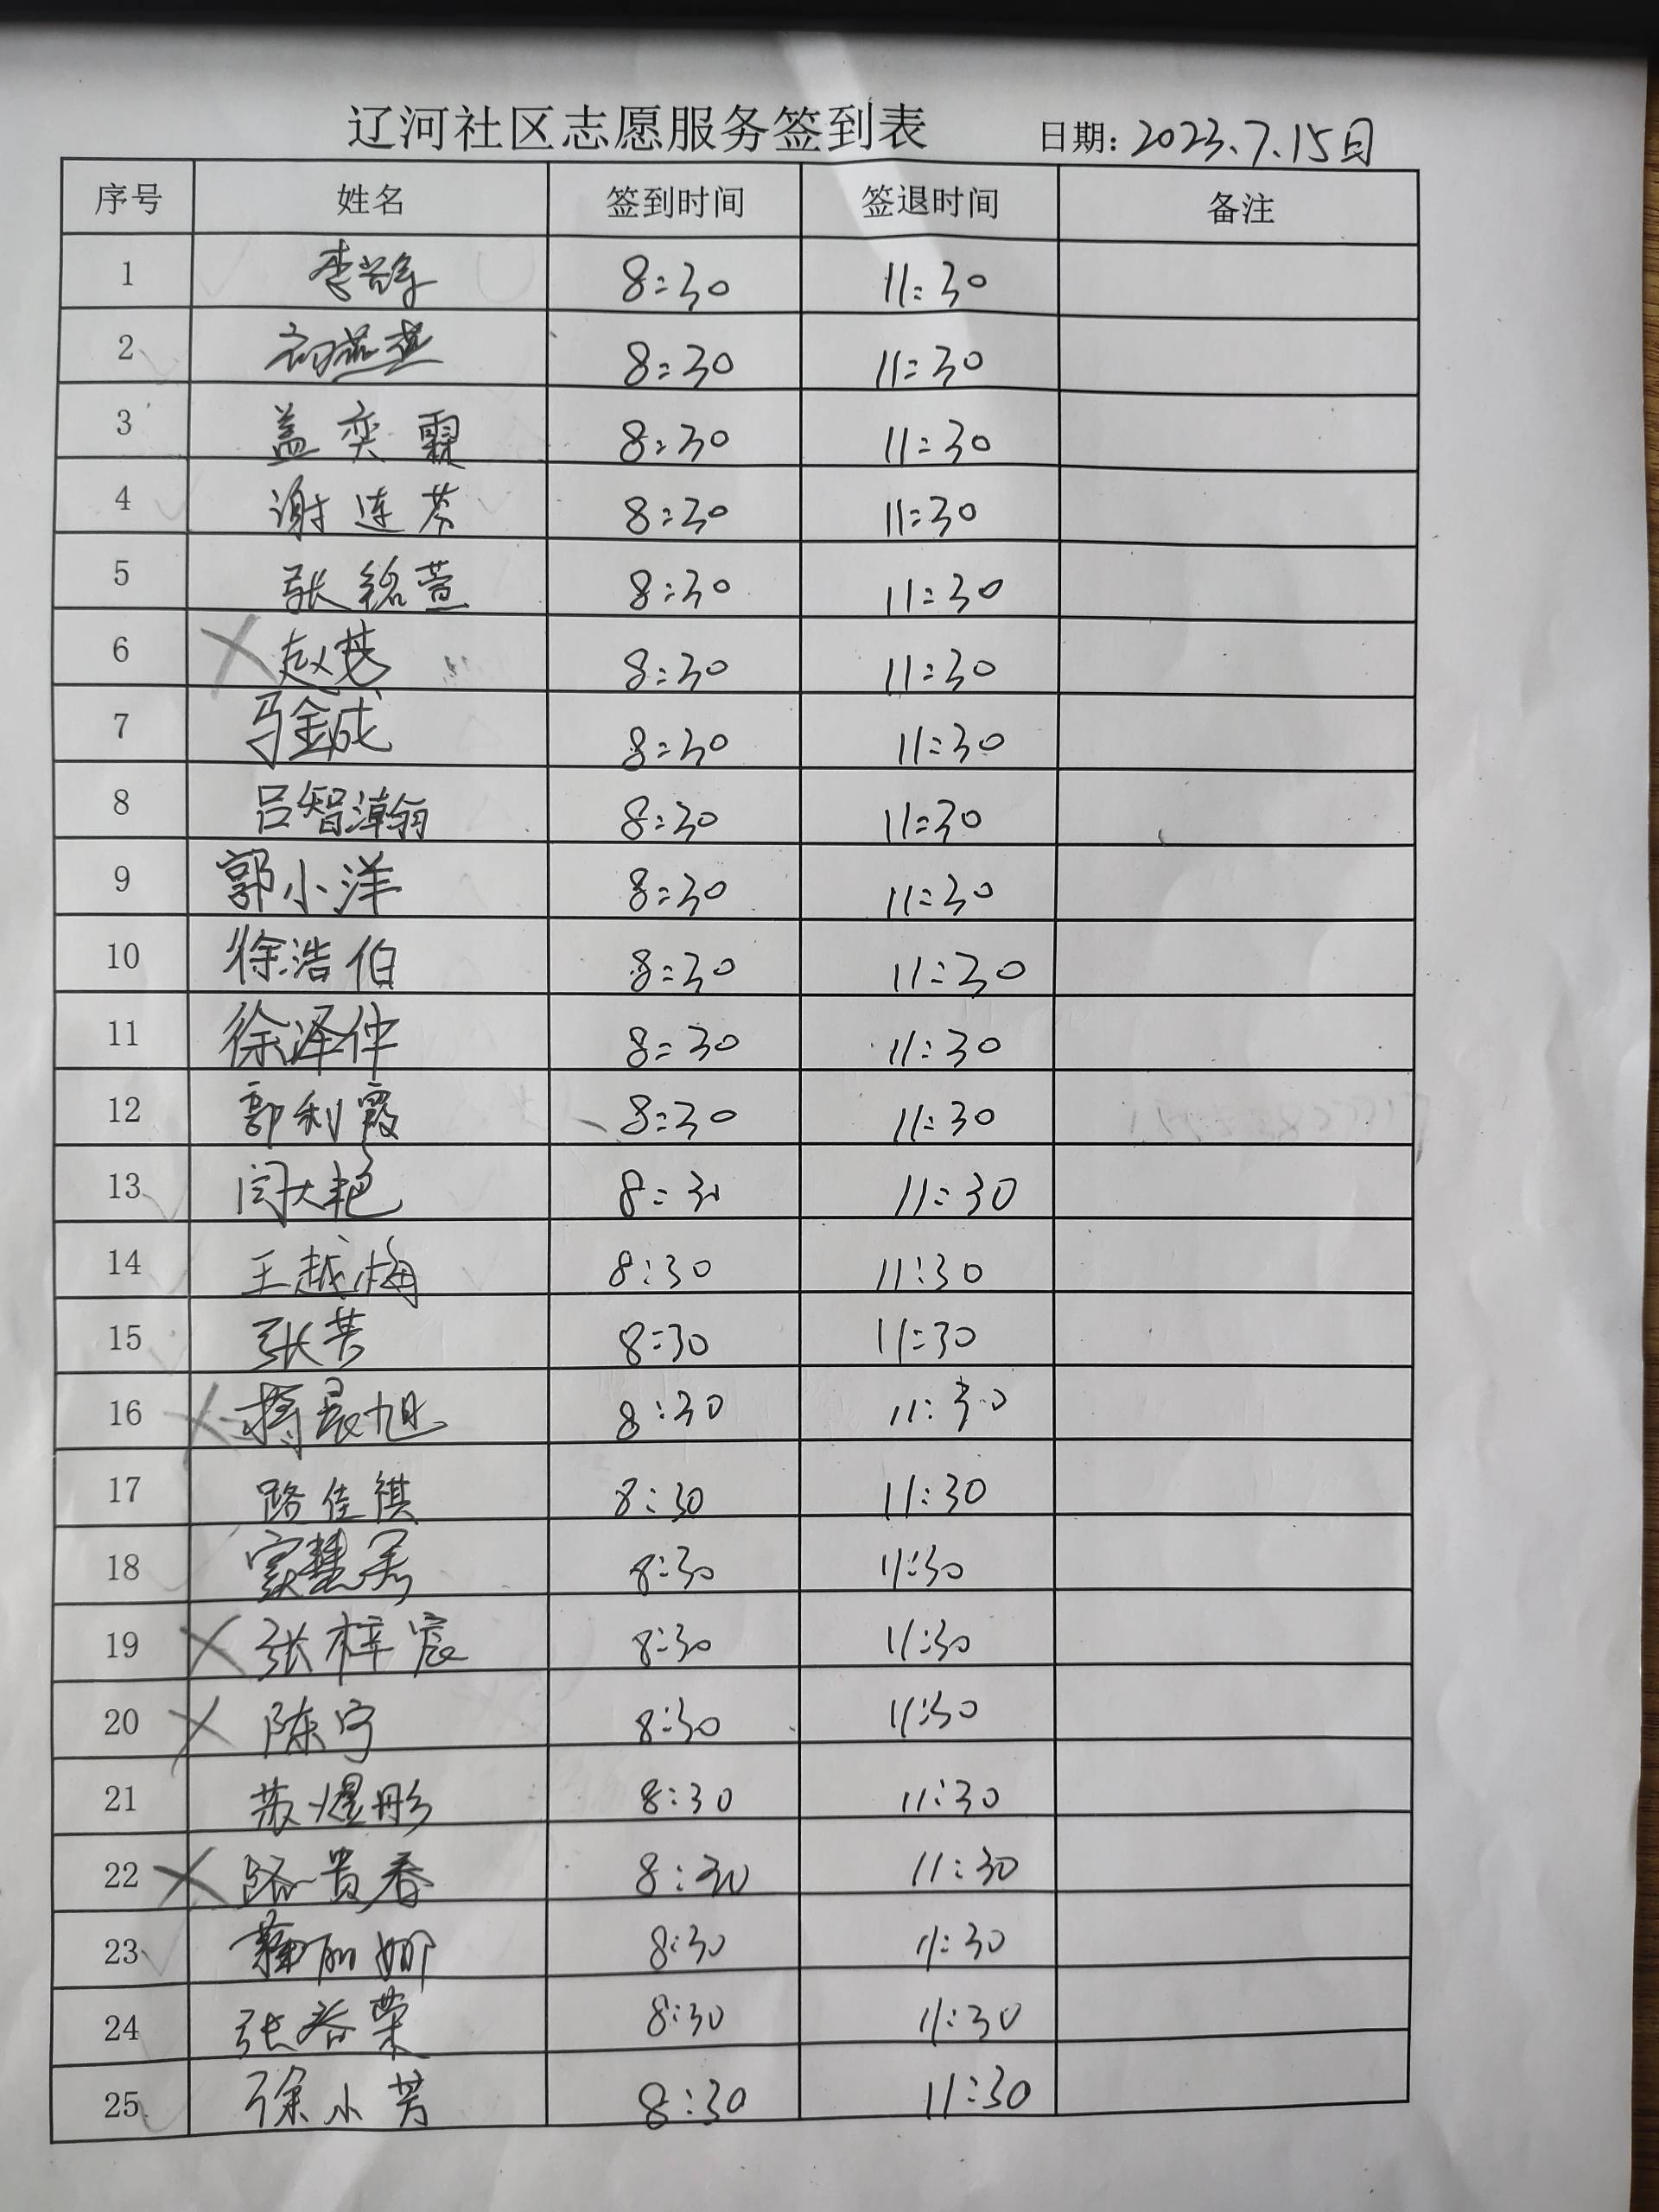 辽河社区志愿服务签到表 日期: 2023.7.15日
序号 姓名 签到时间 签退时间 备注
1 8:30 11:30
2 8:30 11:30
3 盖奕霖 8:30 11:30
4 谢连芬 8:30 11:30
5 张铭萱 8:30 11:30
6 赵 8:30 11:30
7 马金成 8:30 11:30
8 吕智瀚 8:30 11:30
9 郭小洋 8:30 11:30
10 徐浩伯 8:30 11:30
11 徐泽仲 8:30 11:30
12 郭利霞 8:30 11:30
13 闫大艳 8:30 11:30
14 王越梅 8:30 11:30
15 张芳 8:30 11:30
16 晨旭 8:30 11:30
17 路佳祺 8:30 11:30
18 8:30 11:30
19 张梓宸 8:30 11:30
20 陈宇 8:30 11:30
21 苏煜彤 8:30 11:30
22 路贵春 8:30 11:30
23 丽娜 8:30 11:30
24 张春荣 8:30 11:30
25 徐小芳 8:30 11:30